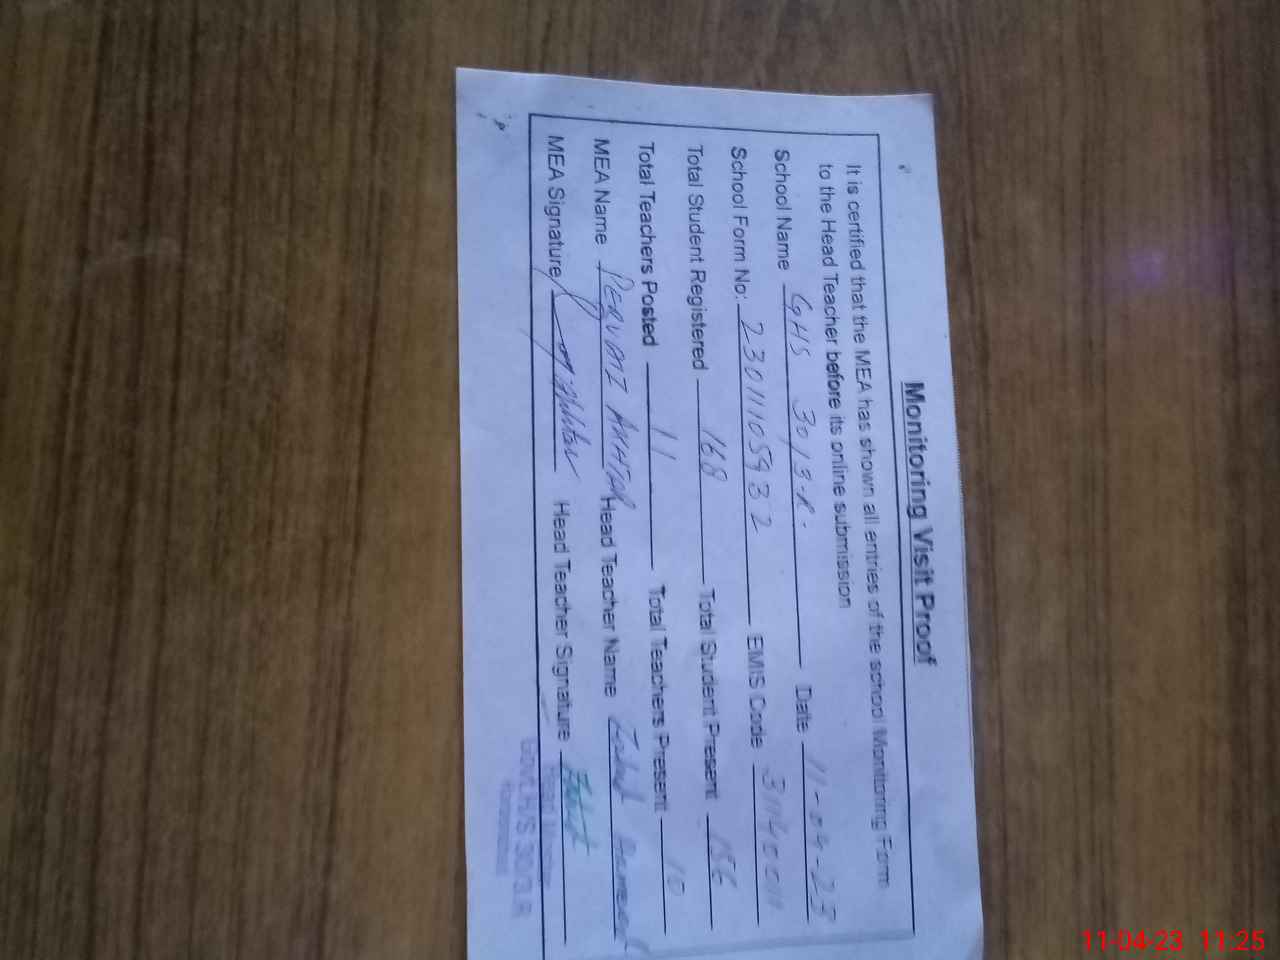 Monitoring Visit Proof
It is certified that the MEA has shown all entries of the school Monitoring Form
to the Head Teacher before its online submission
School Name GHS 30/3-R. Date 11-04-23
School Form No: 23011105932 EMIS Code
Total Student Registered 168 Total Student Present 156
Total Teachers Posted 11 Total Teachers Present 10
MEA Name PERVAIZ AKHTER Head Teacher Name
MEA Signature Head Teacher Signature
Head Master
Govt.H/S 30/3.R
11-04-23 11:25